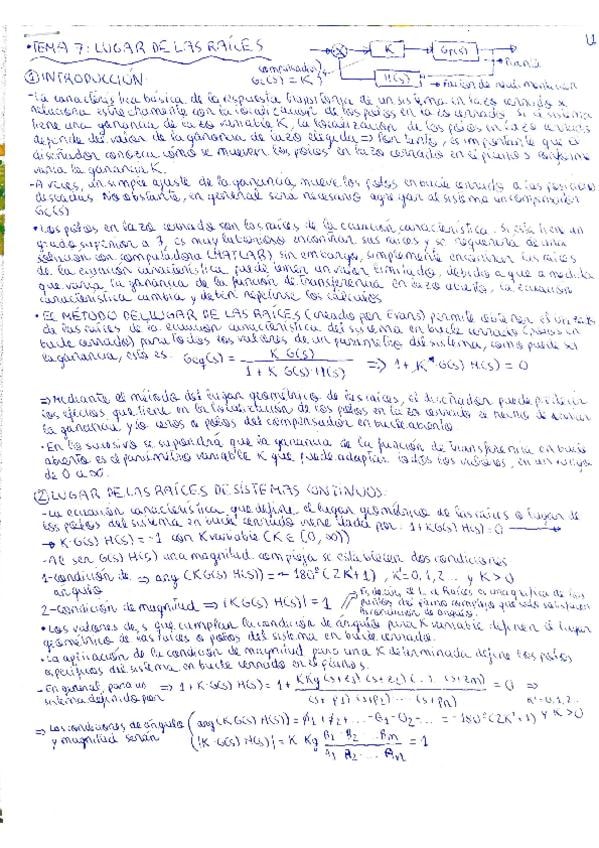 • TEMA 7: LUGAR DE LAS RAÍCES
K
G(s)
Planta
compensador
Gc(s) = K
H(s)
→ Función de
① INTRODUCCIÓN:
- La característica básica de la respuesta transitoria de un sistema en lazo cerrado se
relaciona estrechamente con la localización de los polos en lazo cerrado. Si el sistema
tiene una ganancia de lazo variable K, la localización de los polos en lazo cerrado
depende del valor de la ganancia de lazo elegida ⇒ Por tanto, es importante que el
diseñador conozca cómo se mueven los polos en lazo cerrado en el plano s conforme
varía la ganancia K.
- A veces, un simple ajuste de la ganancia, mueve los polos en bucle cerrado a las posiciones
deseadas. No obstante, en general será necesario agregar al sistema un compensador
Gc(s)
• Los polos en lazo cerrado son las raíces de la ecuación característica. Si esta tiene un
grado superior a 7, es muy laborioso encontrar sus raíces y se requerirá de una
solución con computadora (MATLAB), sin embargo, simplemente encontrar las raíces
de la ecuación característica puede tener un valor limitado, debido a que a medida
que varía la ganancia de la función de transferencia en lazo abierto, la ecuación
característica cambia y deben repetirse los cálculos
• EL MÉTODO DEL LUGAR DE LAS RAÍCES (creado por Evans) permite obtener el
de las raíces de la ecuación característica del sistema en bucle cerrado (polos en
bucle cerrado) para todos los valores de un parámetro del sistema, como puede ser
la ganancia, esto es. Geq(s) = K G(s) / 1 + K G(s)·H(s) ⇒ 1 + K·G(s) H(s) = 0
⇒ Mediante el método del lugar geométrico de las raíces, el diseñador puede predecir
los efectos que tiene en la localización de los polos en lazo cerrado el hecho de variar
la ganancia y/o ceros o polos del compensador en bucle abierto
• En lo sucesivo se supondrá que la ganancia de la función de transferencia en bucle
abierto es el parámetro variable K que puede adoptar todos los valores, en un rango
de 0 a ∞.
② LUGAR DE LAS RAÍCES DE SISTEMAS CONTINUOS:
- La ecuación característica que define el lugar geométrico de las raíces o lugar de
los polos del sistema en bucle cerrado viene dada por: 1 + KG(s) H(s) = 0
→ K·G(s) H(s) = -1 con K variable (K ∈ (0, ∞))
- Al ser G(s) H(s) una magnitud compleja se establecen dos condiciones
1- condición de ángulo ⇒ arg (KG(s) H(s)) = - 180° (2K'+1) , K' = 0,1,2... y K > 0
2- condición de magnitud ⇒ |K G(s) H(s)| = 1
Es decir, el L. de Raíces es una gráfica de los
puntos del plano complejo que solo satisfacen
la condición de ángulo.
• Los valores de s que cumplan la condición de ángulo para K variable definen el lugar
geométrico de las raíces o polos del sistema en bucle cerrado.
• La aplicación de la condición de magnitud para una K determinada define los polos
específicos del sistema en bucle cerrado en el plano s.
- En general, para un sistema definido por ⇒ 1 + K·G(s) H(s) = 1 + K Kg (s+z1) (s+z2) (...) (s+zm) / (s+p1) (s+p2) ... (s+pn) = 0 ⇒
⇒ Las condiciones de ángulo y magnitud serán
arg (K G(s) H(s)) = φ1 + φ2 + ... - θ1 - θ2 - ... = -180° (2K'+1) K' = 0,1,2.. y K > 0
|K·G(s) H(s)| = K Kg B1·B2 ... Bm / A1 A2 ... = 1